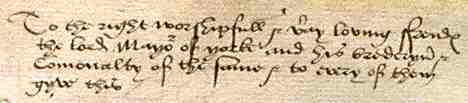 To the right worshipfull & vay loving ffrendꝭ
the lord Mayor of yorke and his brederyn &
Comonalty of the same & to every of them
gyve this